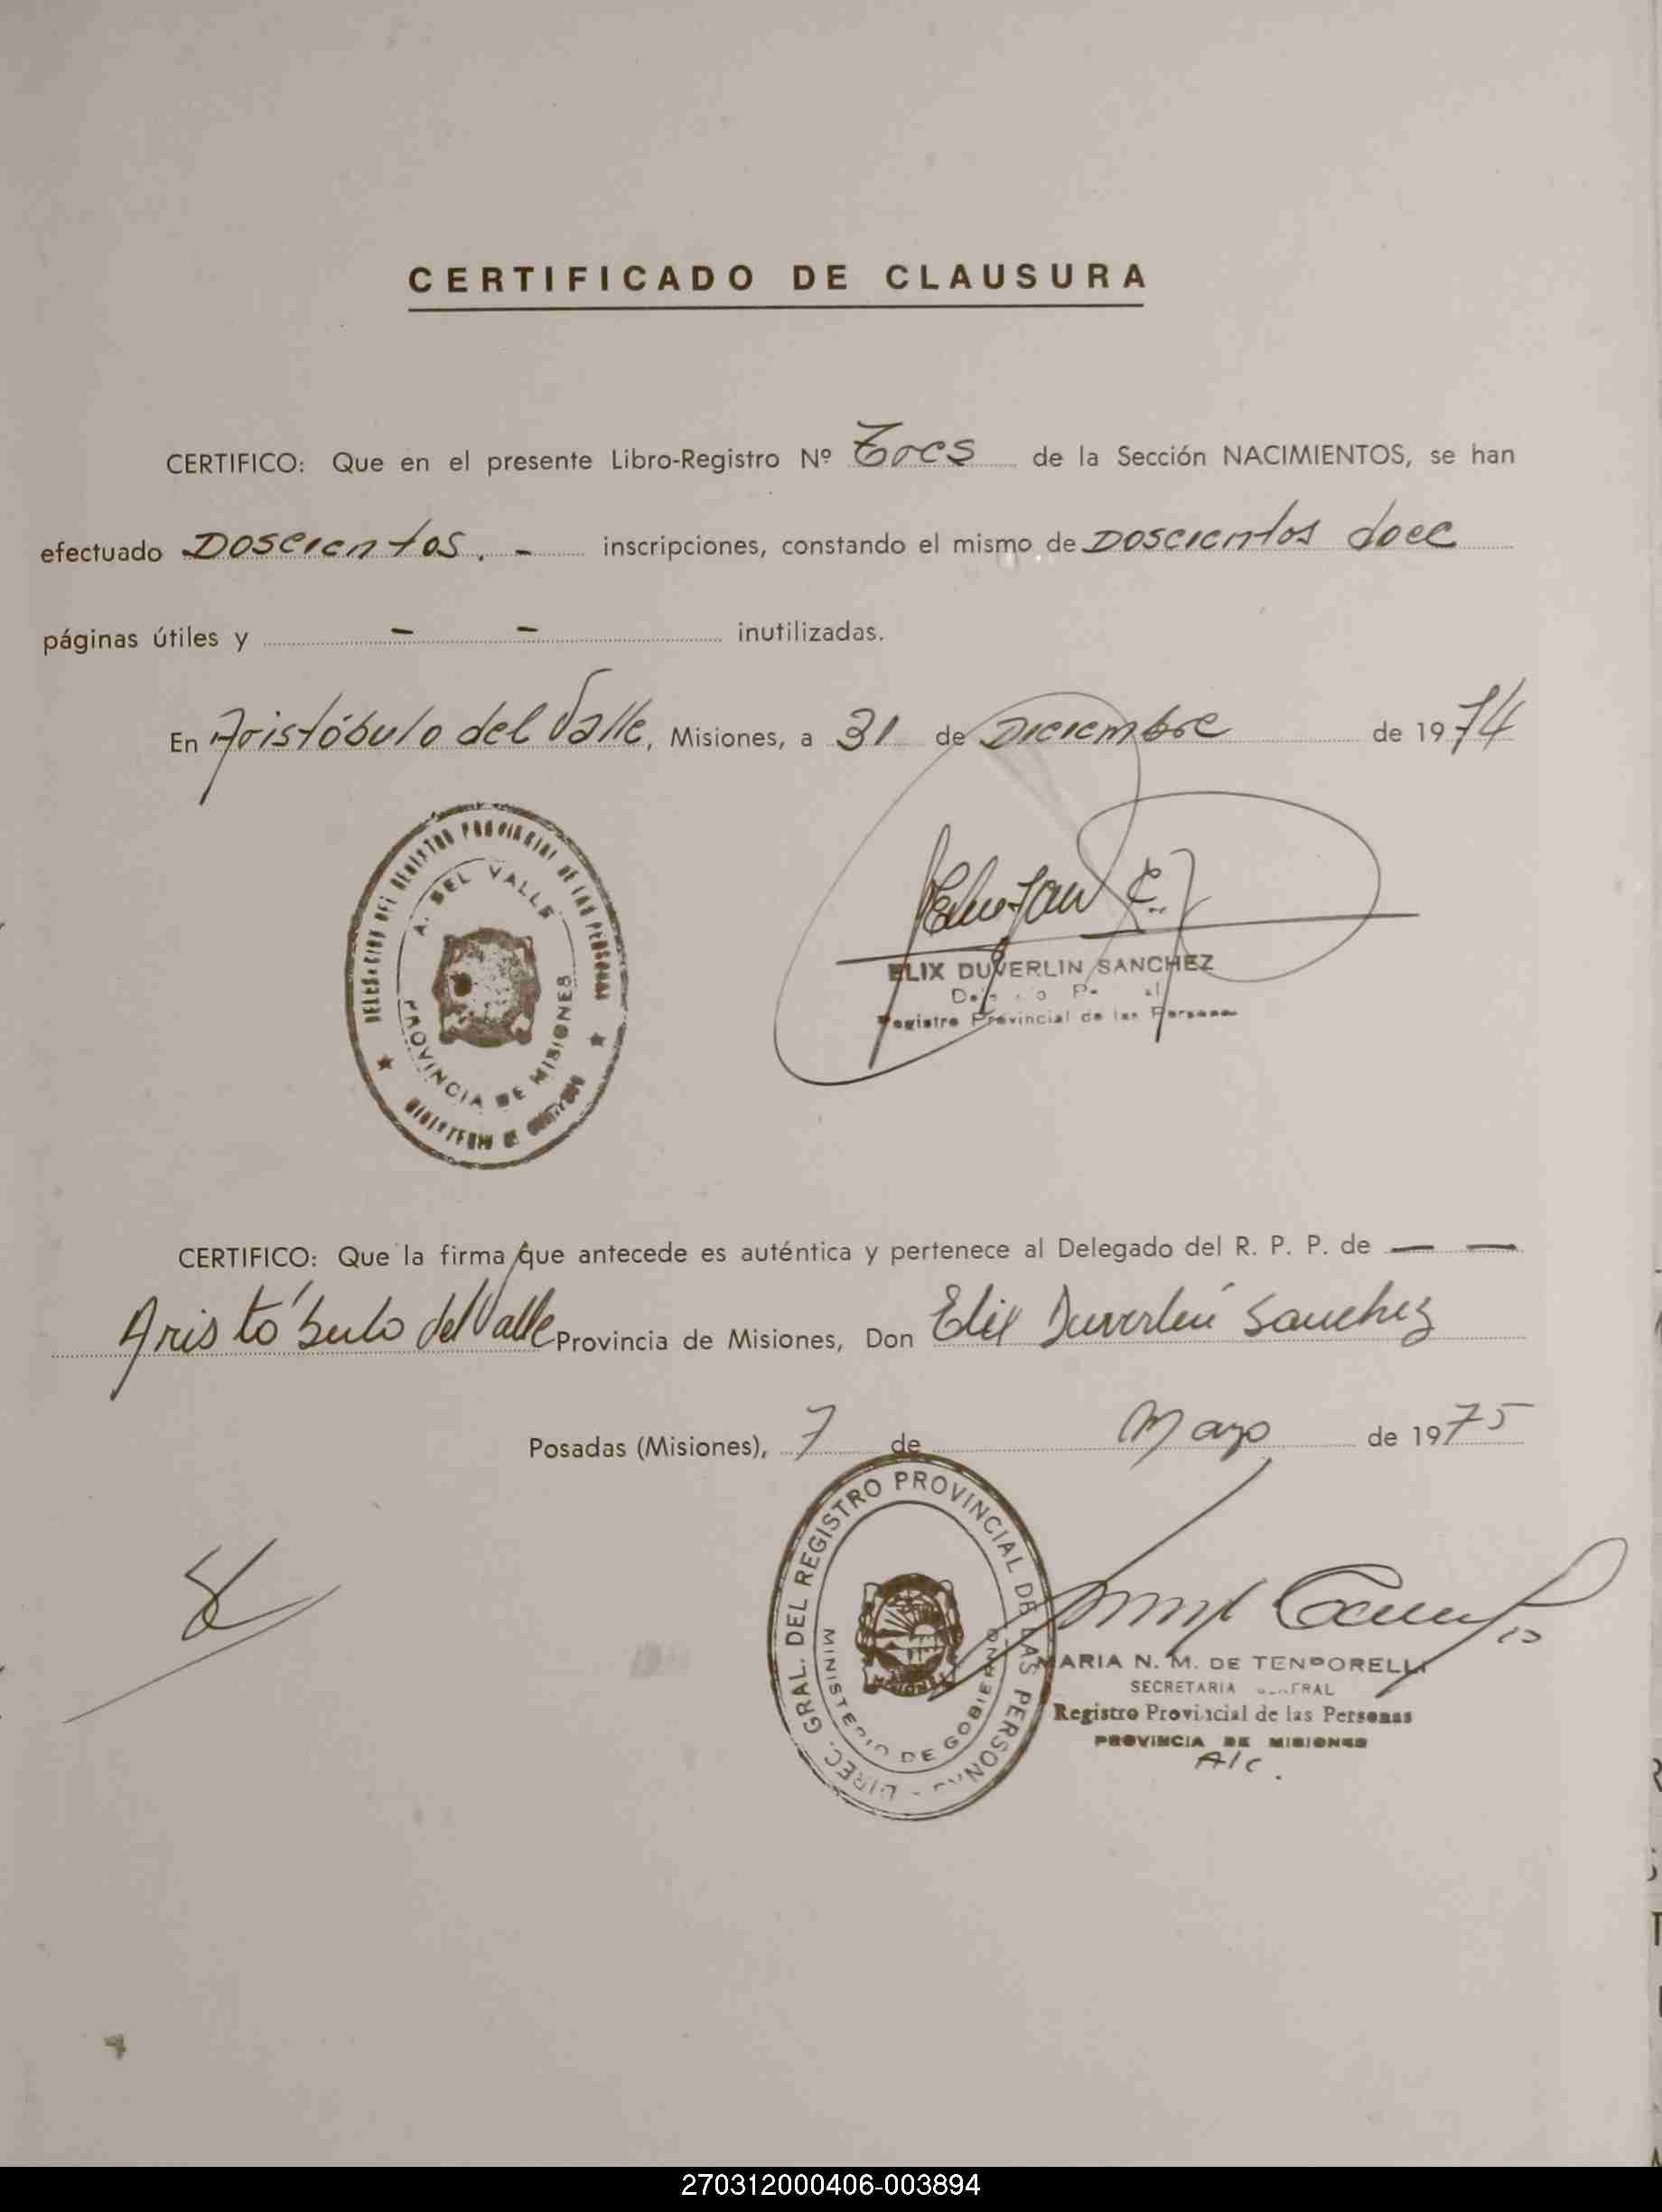 CERTIFICADO DE CLAUSURA
CERTIFICO: Que en el presente Libro-Registro Nº Tres de la Sección NACIMIENTOS, se han
efectuado Doscientos. - inscripciones, constando el mismo de Doscientos doce
páginas útiles y - - inutilizadas.
En Aristóbulo del Valle, Misiones, a 31 de Diciembre de 1974
DELEGACION DEL REGISTRO PROVINCIAL DE LAS PERSONAS
A. DEL VALLE
PROVINCIA DE MISIONES
MINISTERIO DE GOBIERNO
ELIX DUVERLIN SANCHEZ
Registro Provincial de las Personas
CERTIFICO: Que la firma que antecede es auténtica y pertenece al Delegado del R. P. P. de — —
Aristóbulo del Valle Provincia de Misiones, Don Elix Duverlin Sanchez
Posadas (Misiones), 7 de Mayo de 1975
DIREC. GRAL. DEL REGISTRO PROVINCIAL DE LAS PERSONAS -
MINISTERIO DE GOBIERNO
MISIONES
MARIA N. M. DE TENDORELLI
SECRETARIA GENERAL
Registro Provincial de las Personas
PROVINCIA DE MISIONES
A/C.
270312000406-003894